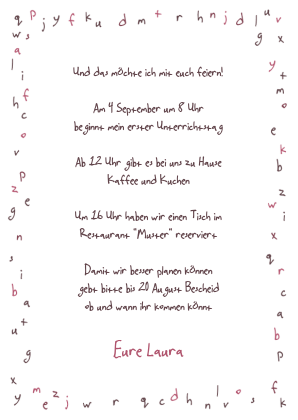 Und das möchte ich mit euch feiern!
Am 4 September um 8 Uhr
beginnt mein erster Unterrichtstag
Ab 12 Uhr gibt es bei uns zu Hause
Kaffee und Kuchen
Um 16 Uhr haben wir einen Tisch im
Restaurant "Muster" reserviert
Damit wir besser planen können
gebt bitte bis 20 August Bescheid
ob und wann ihr kommen könnt
Eure Laura